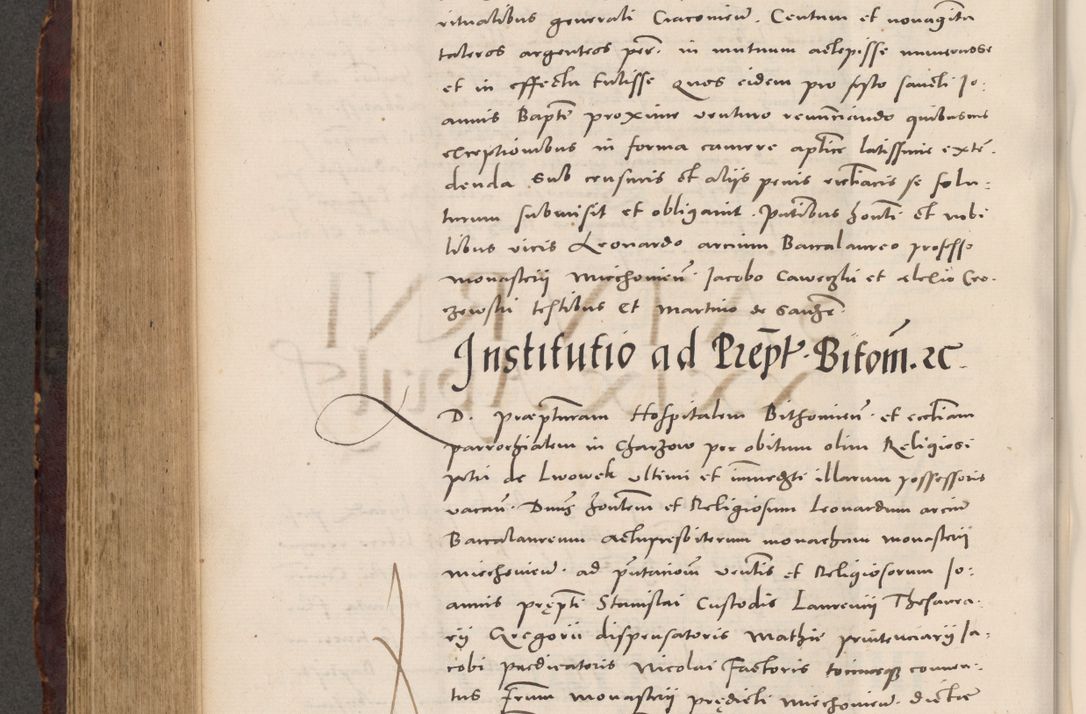 ritualibus generali Cracovien. Centum et nonaginta
taleros argenteos per. in mutuum accepisse numerasse
et in effectu tulisse quos eidem pro festo sancti Jo:
annis Bapte proxime venturo renunciando quibusvis
exceptionibus in forma camere aplice latissime exten:
denda sub censuris et aliis penis ecclesiacis se solu:
turum submisit et obligavit. Pntibus honti et nobi
libus viris Leonardo arcium Baccalaureo professo
monasterii Miechovien. Jacobo et
testibus et Martino de
Institutio ad Prept. Bitom. rc.
D. Præpturam Hospitalem Bithomien. et ecclam
parrochialem in Charzow per obitum olim Religiosi
petri de Lwowek ultimi et immedti illarum possessoris
vacan. Dnus hontem et Religiosum Leonardum arciu
Baccalaureum ac presbiterum monachum monasterii
Miechovien. ad pntaciom ventis et Religiosorum Jo:
annis prepti Stanislai Custodis Laurentii Thesaura:
rii Gregorii dispensatoris Mathie penitenciarii Ja:
cobi predicatoris Nicolai Factoris tociusque conven:
tus Frum monasterii predicti Miechovien. dicte